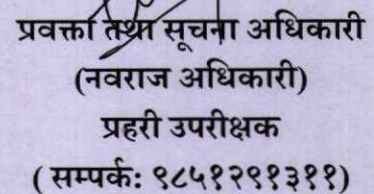 प्रवक्ता तथा सूचना अधिकारी
(नवराज अधिकारी)
प्रहरी उपरीक्षक
( सम्पर्कः ९८५१२९१३११)